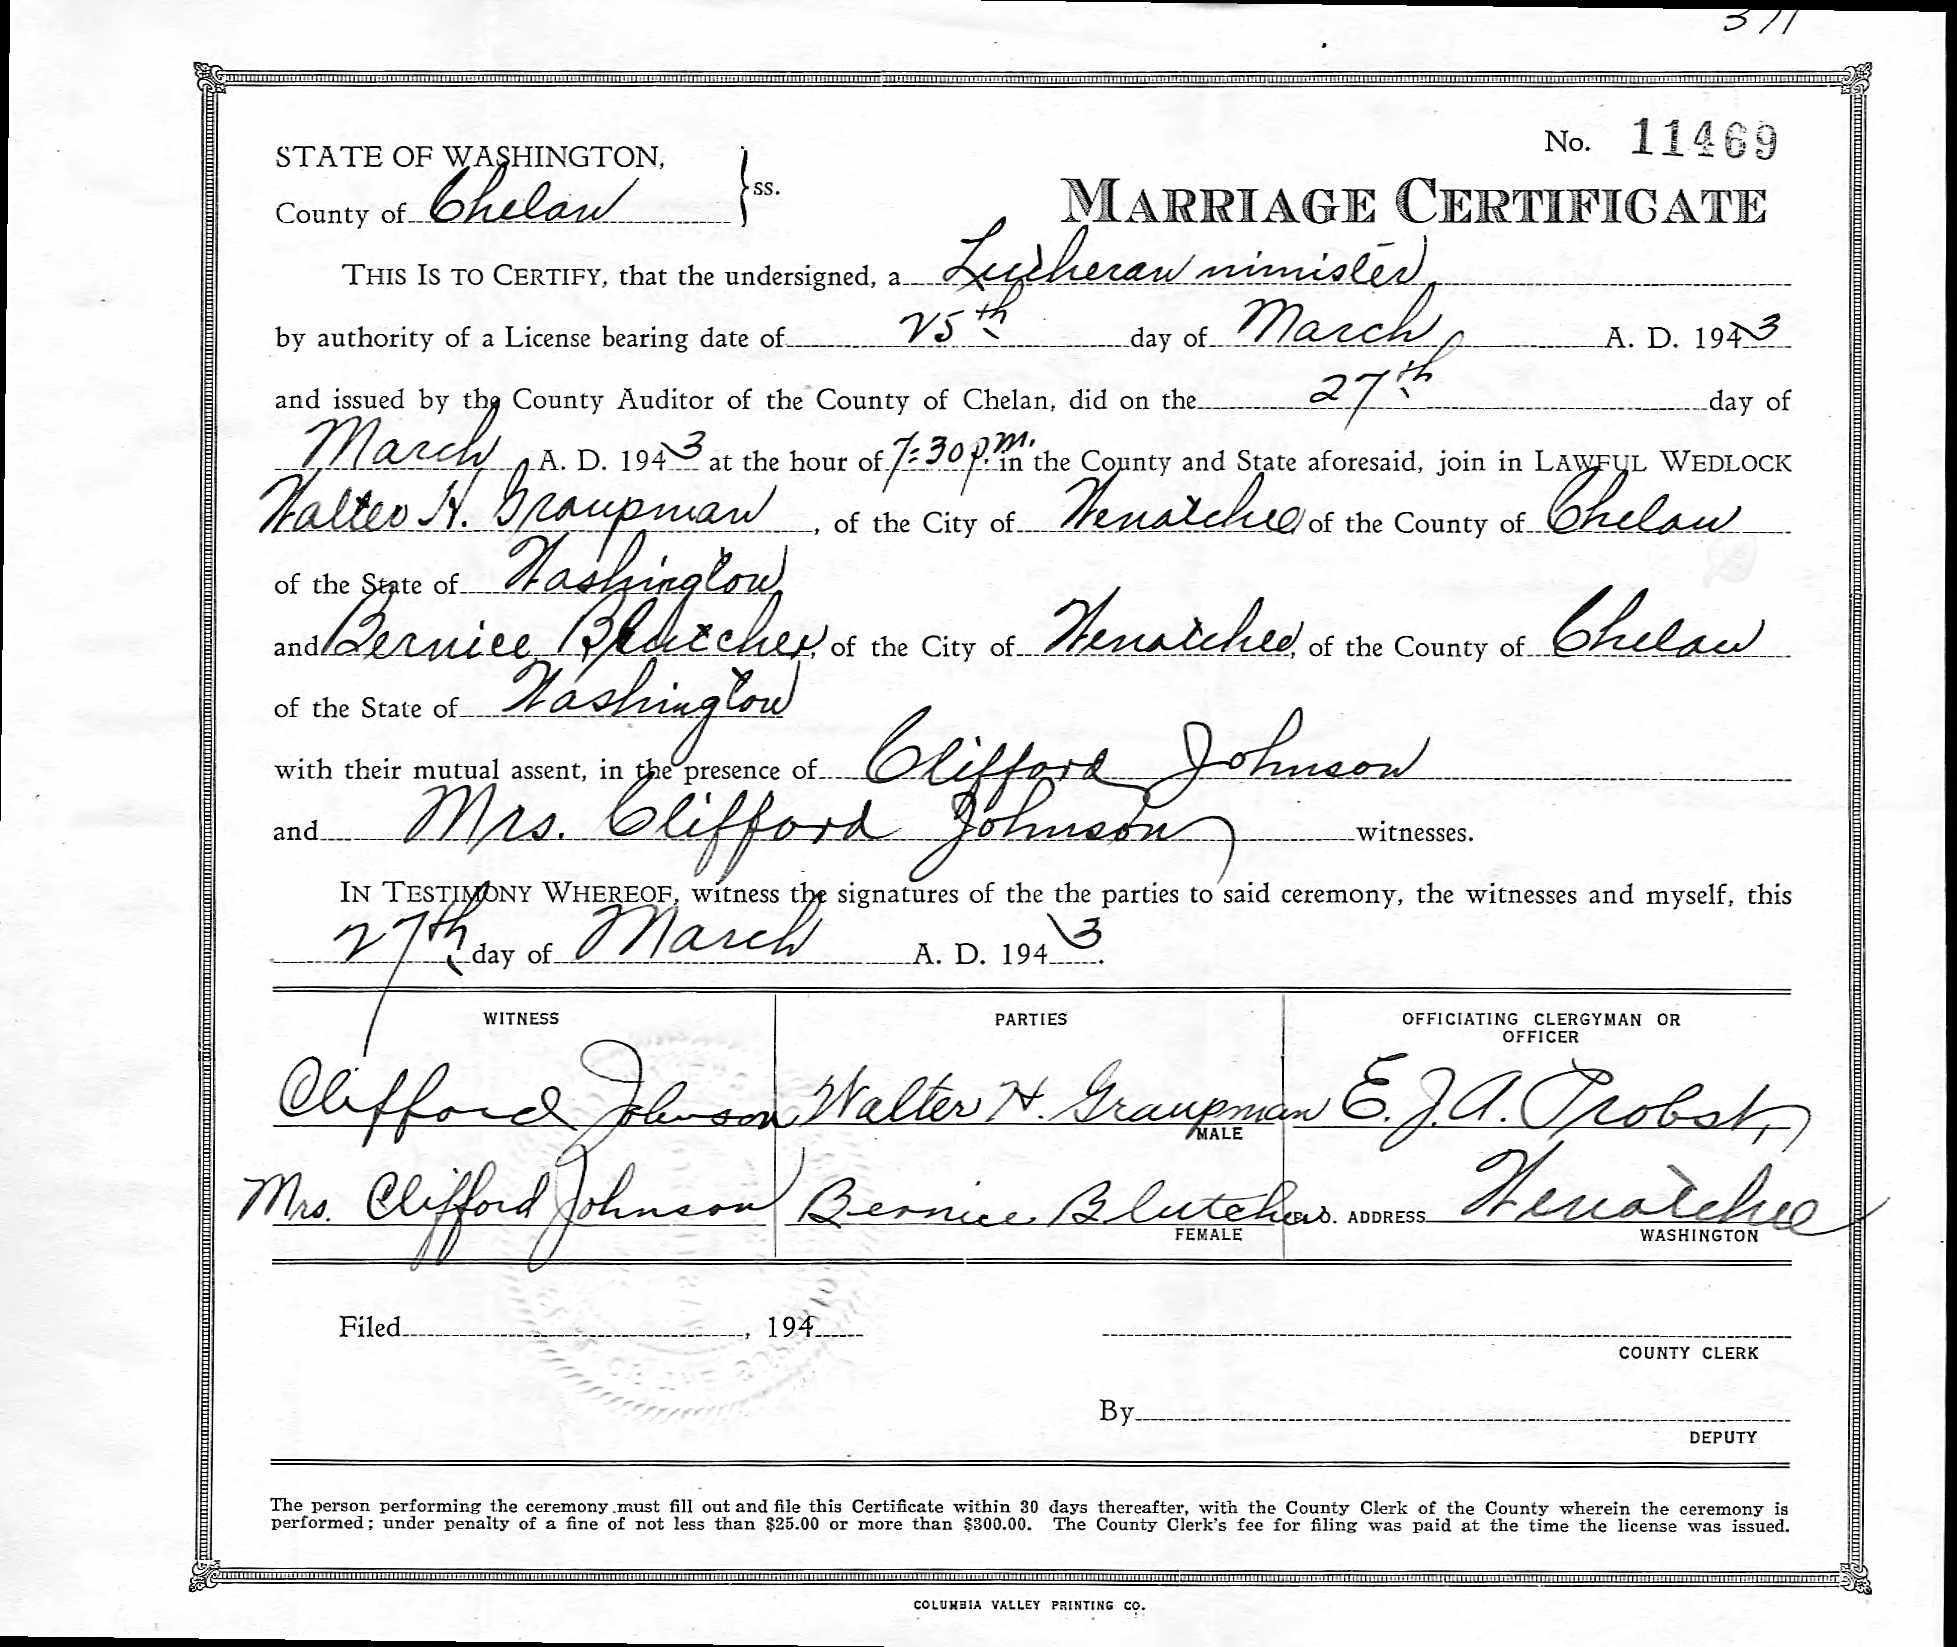 371
No. 11469
STATE OF WASHINGTON,
County of Chelan } ss.
MARRIAGE CERTIFICATE
THIS IS TO CERTIFY, that the undersigned, a Lutheran minister
by authority of a License bearing date of 25th day of March A. D. 1943
and issued by the County Auditor of the County of Chelan, did on the 27th day of
March A. D. 1943 at the hour of 7:30 p.m. in the County and State aforesaid, join in LAWFUL WEDLOCK
Walter H. Graupman, of the City of Wenatchee of the County of Chelan
of the State of Washington
and Bernice Blutcher, of the City of Wenatchee, of the County of Chelan
of the State of Washington
with their mutual assent, in the presence of Clifford Johnson
and Mrs. Clifford Johnson witnesses.
IN TESTIMONY WHEREOF, witness the signatures of the the parties to said ceremony, the witnesses and myself, this
27th day of March A. D. 1943.
WITNESS PARTIES OFFICIATING CLERGYMAN OR
OFFICER
Clifford Johnson Walter H. Graupman E. J. A. Probst,
MALE
Mrs. Clifford Johnson Bernice Blutcher P.O. ADDRESS Wenatchee
FEMALE WASHINGTON
Filed , 194
COUNTY CLERK
By
DEPUTY
The person performing the ceremony must fill out and file this Certificate within 30 days thereafter, with the County Clerk of the County wherein the ceremony is
performed; under penalty of a fine of not less than $25.00 or more than $300.00. The County Clerk's fee for filing was paid at the time the license was issued.
COLUMBIA VALLEY PRINTING CO.